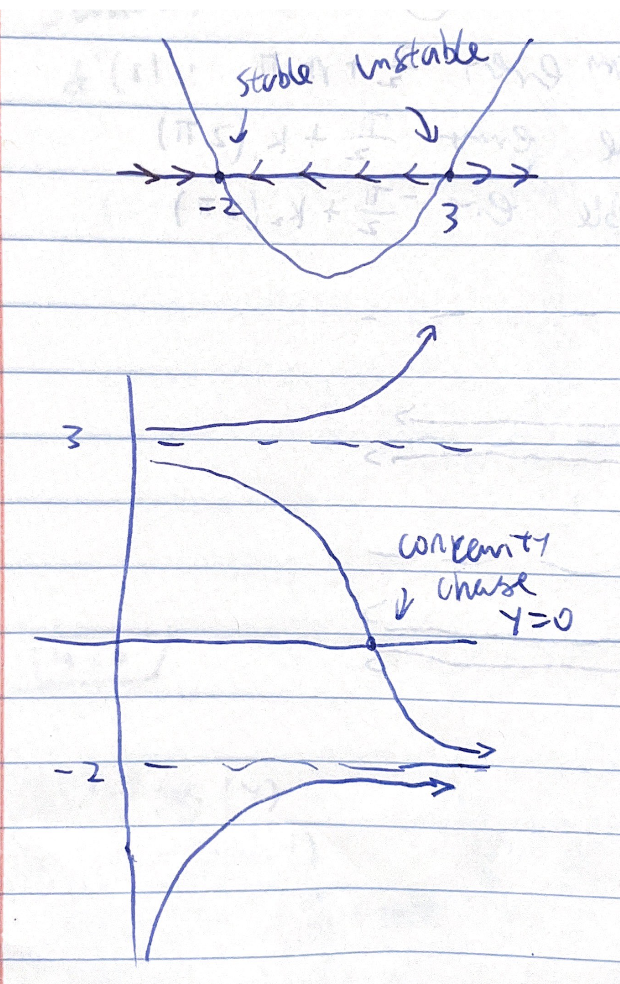 stable unstable
-2
3
3
concavity
change
y=0
-2